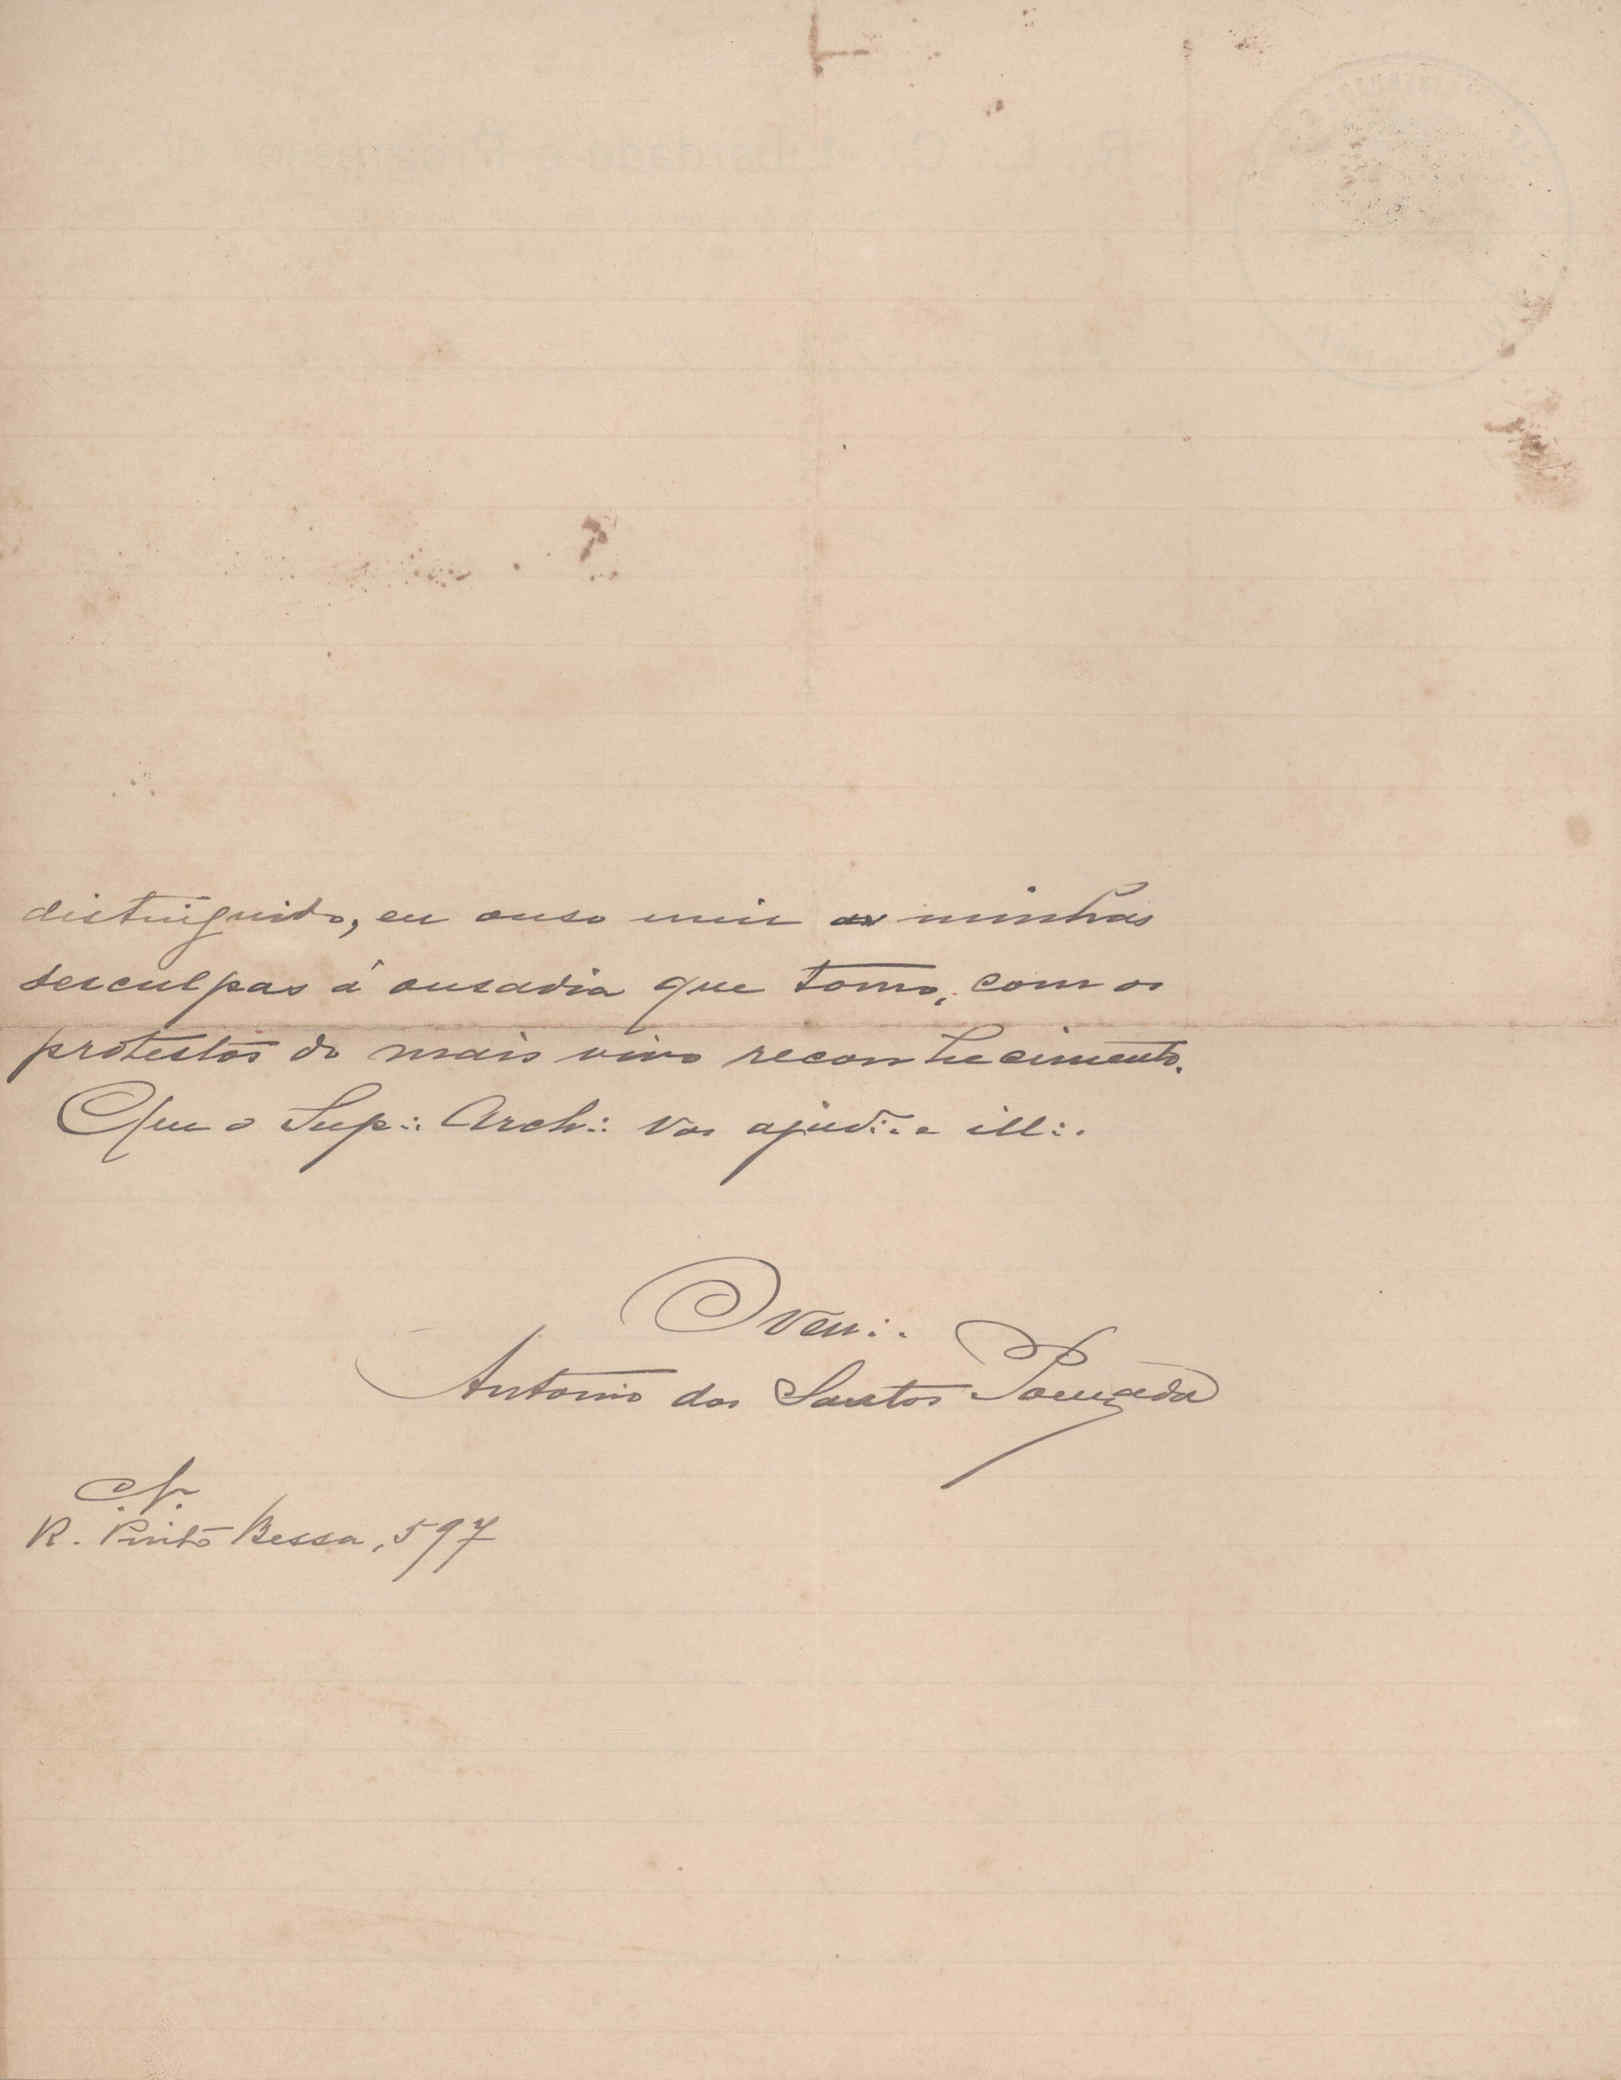 distinguido, eu ouso unir as minhas
desculpas á ousadia que tomo, com os
protestos do mais vivo reconhecimento.
Que o Sup∴ Arch∴ vos ajud∴ e ill∴
O Ven∴
Antonio dos Santos Pousada
R. Pinto Bessa, 597
R. L. C. Liberdade e Progresso